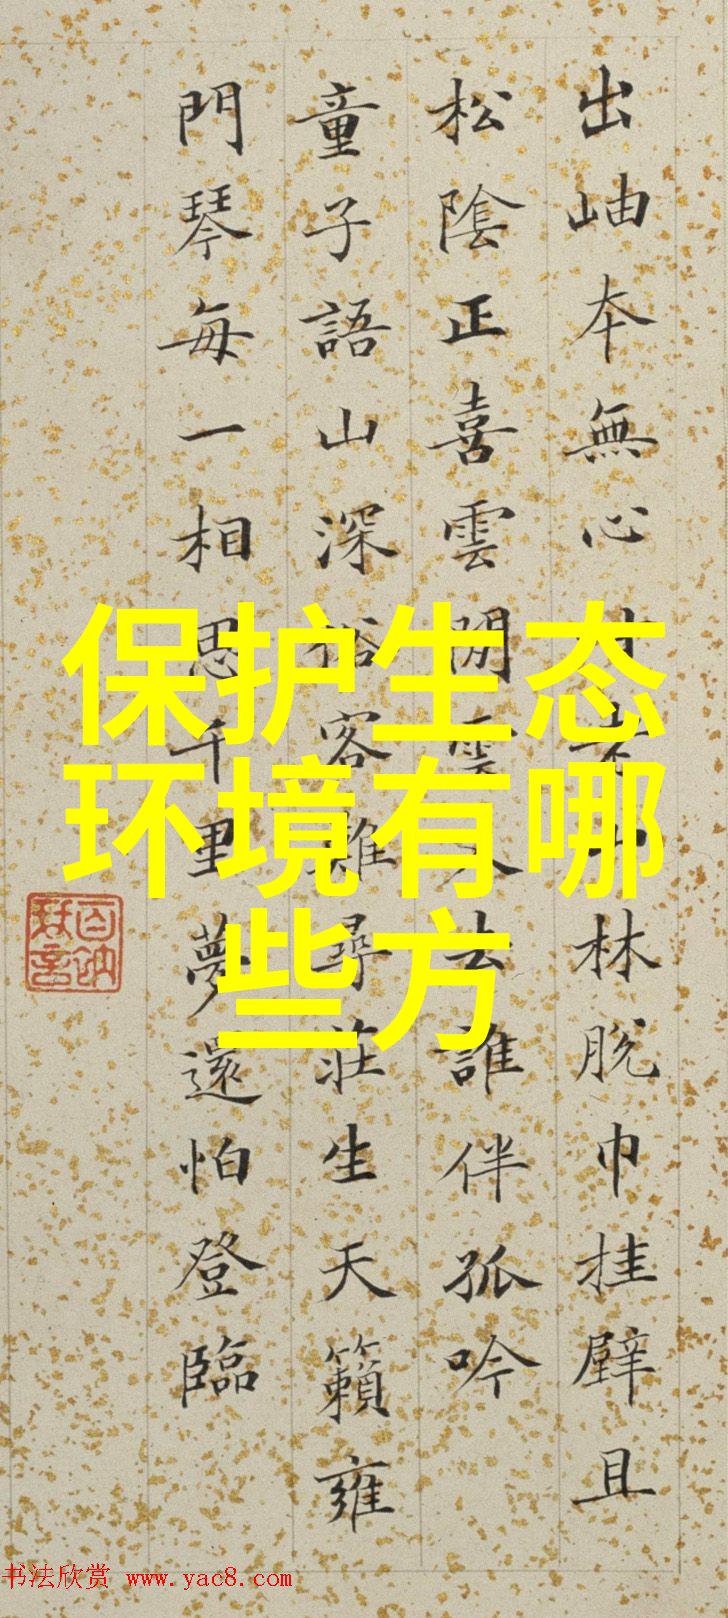 出岫本無心林脫巾挂壁且
松陰正喜雲閒雲去誰伴孤吟
童子語山深俗客難尋莊生天籟雍
門琴每一相思千里夢還怕登臨
保护生态
环境有哪
些方
书法欣赏 www.yac8.com